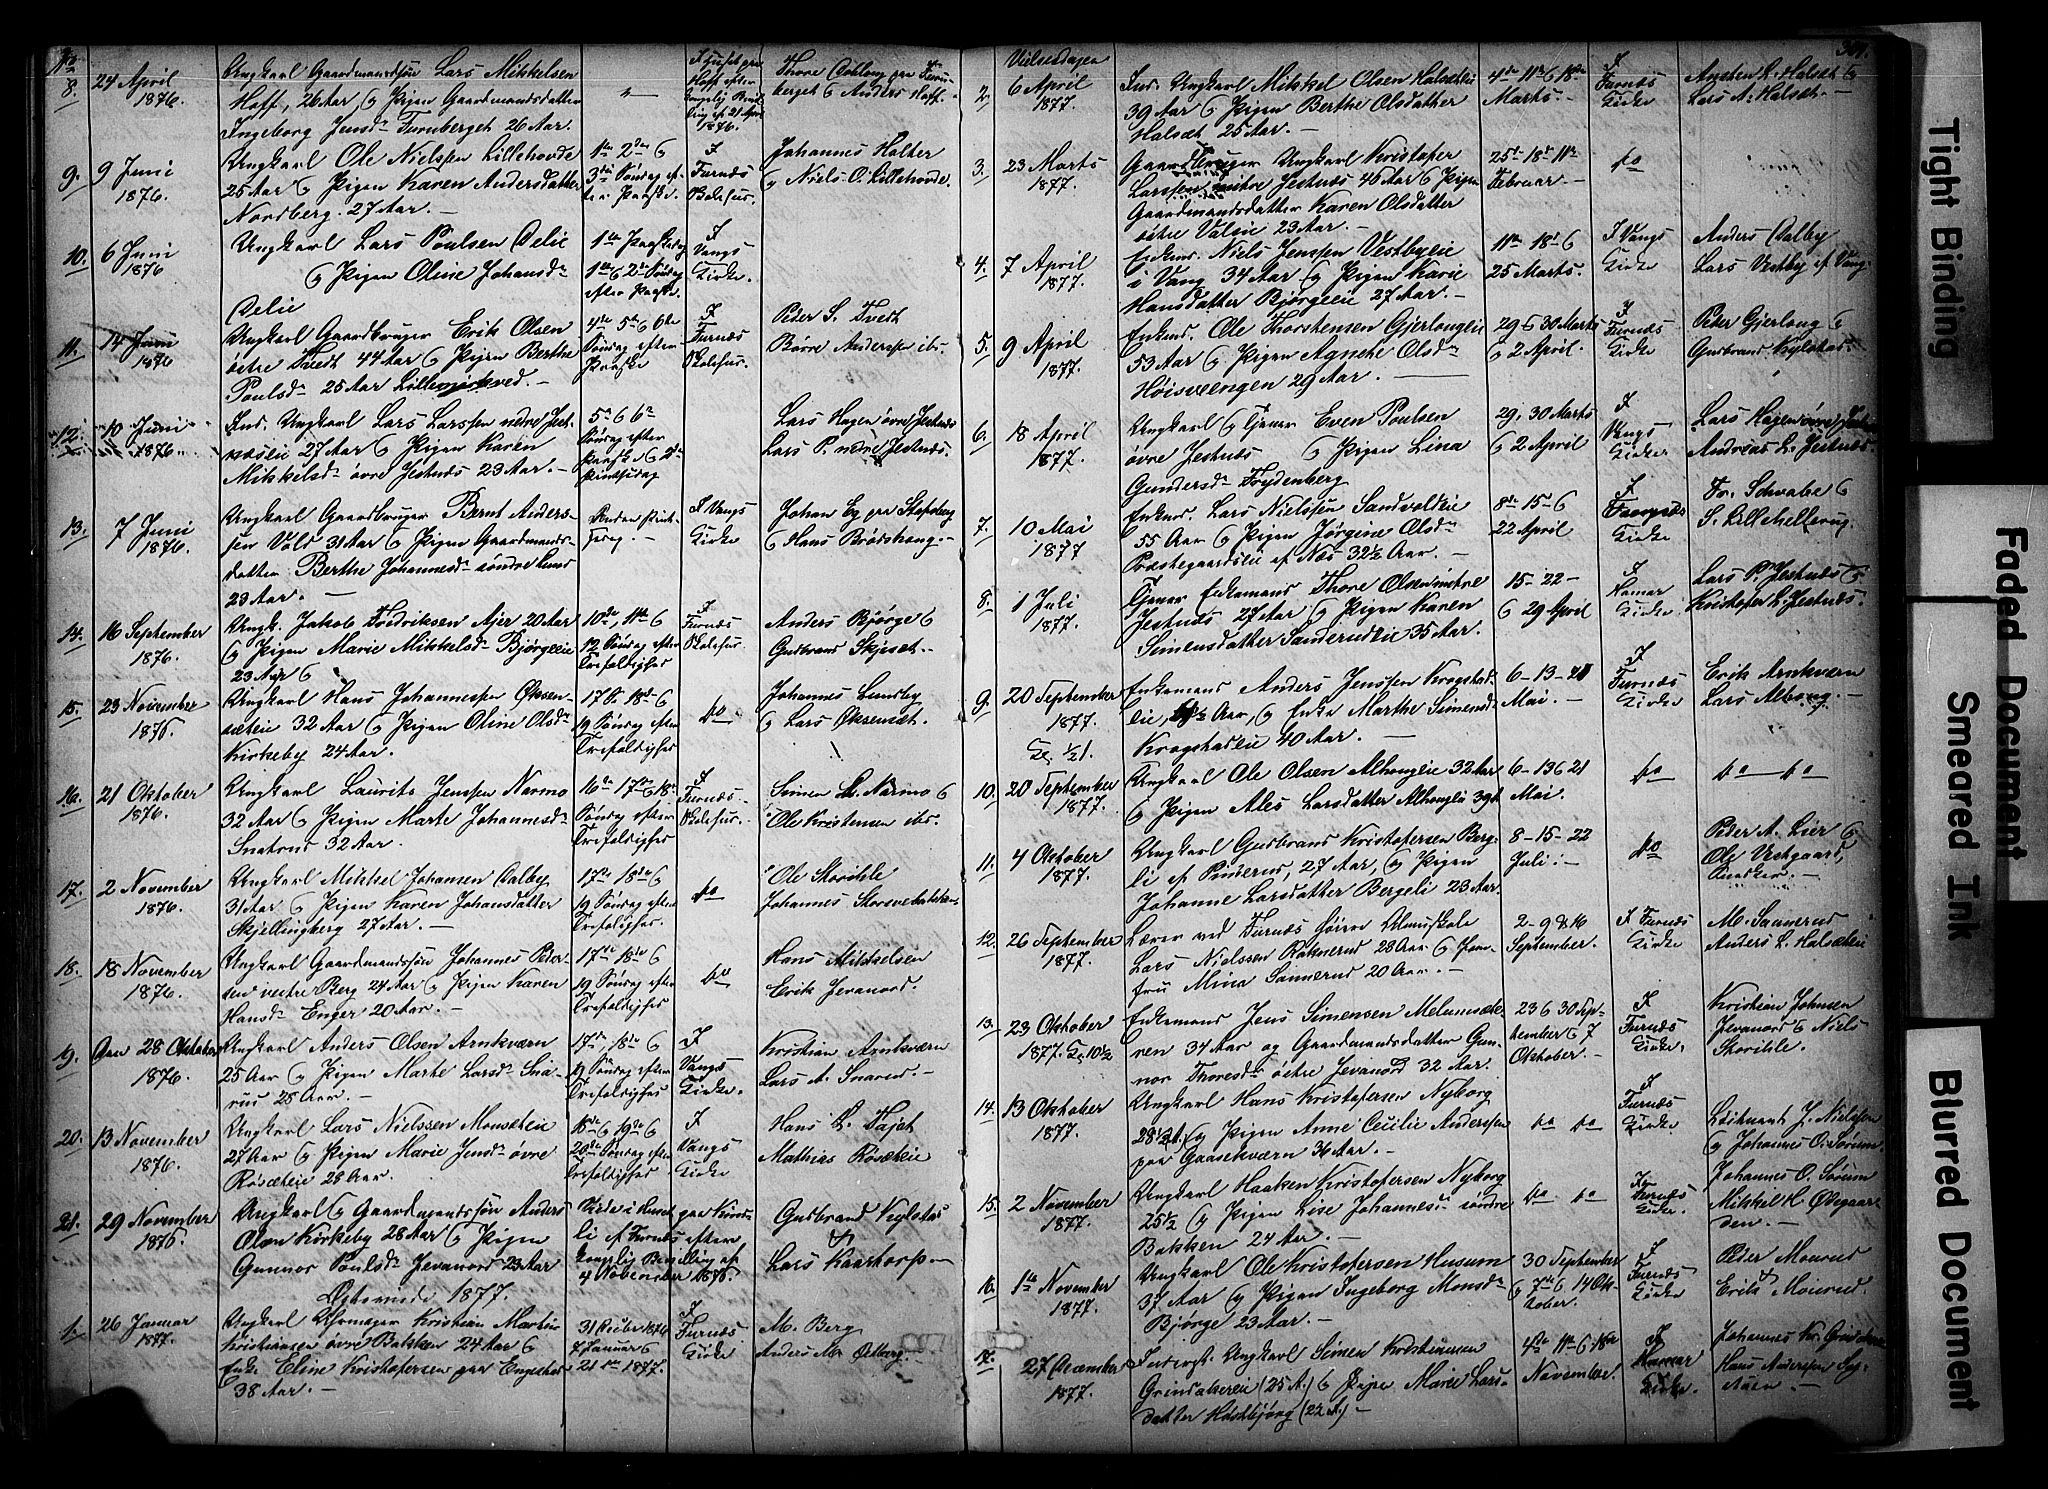 No
8. 24 April
1876.
Ungkarl Gaardmandssön Lars Mikkelsen
Hoff, 26 Aar, og Pigen Gaardmandsdatter
Ingeborg Jensdr Furuberget 26 Aar.
Hoff efter
1876.
Thore
berget & Anders Hoff.
9. 9 Juni
1876.
Ungkarl Ole Nielsen Lillehovde
25 Aar og Pigen Karen Andersdatter
Nordberg. 27 Aar. —
1ste 2den &
3die Söndag ef-
ter Paaske.
I
Furnæs
Skolehus.
Johannes Holter
og Niels O. Lillehovde.
10. 6 Juni
1876
Ungkarl Lars Poulsen Delie
og Pigen Oline Johansdr
Delie
1ste Paaskedag
1ste & 2den Söndag
efter Paaske.
I
Vangs
Kirke.
11. 14 Juni
1876
Ungkarl Gaardbruger Erik Olsen
östre Tvedt 44 Aar & Pigen Berthe
Poulsdr 25 Aar
4de 5te & 6te
Söndag efter
Paaske
I
Furnæs
Skolehus.
Peder S. Tvedt
Börre Andersen ibd.
12. 10 Juni
1876
Ind. Ungkarl Lars Larssen nedre Jest-
næseie 27 Aar & Pigen Karen
Mikkelsdr övre Jestnæs 23 Aar. —
5te & 6te
Söndag efter
Paaske & 2den
Pindsedag
Lars Hagen övre Jestnæs
Lars P. nedre Jestnæs.
13. 7 Juni
1876.
Ungkarl Gaardbruger Bernt Anders-
sen Vold 31 Aar & Pigen Gaardmands-
datter Berthe Johannesdr söndre Lund
23 Aar. —
Anden Pint-
sedag.
I Vangs
Kirke
& Hans Brödshaug. —
14. 16 September
1876.
Ungk. Jakob Fredriksen Ajer 20 Aar
og Pigen Marie Mikkelsdr Björgeeie
23 Aar
10de, 11te &
12 Söndag efter
Trefoldighed
I
Furnæs
Skolehus.
Anders Björge &
Gudbrand Skjeset.
15. 23 November
1876.
Ungkarl Hans Johannessen Öksen-
sæteie 32 Aar & Pigen Oline Olsdr
Kirkeby 24 Aar.
17de 18de &
19 Söndag efter
Trefoldighed
do
Johannes Lundby
og Lars Öksensæt.
16. 21 Oktober
1876.
Ungkarl Laurits Jenssen Narmo
32 Aar & Pigen Marte Johannesdr
Snarud 32 Aar.
16de 17de & 18de
Söndag efter
Trefoldighed
I
Furnæs
Skolehus.
Simen L. Narmo &
Ole Kristensen ibd.
17. 2 November
1876.
Ungkarl Mikkel Johansen Dalby
31 Aar & Pigen Karen Johansdatter
Skjellingberg 27 Aar. —
17de 18de &
19 Söndag efter
Trefoldighed.
do
Ole Storihle
Johannes
18. 18 November
1876.
Ungkarl Gaardmandssön Johannes Peder-
sen vestre Berg 24 Aar & Pigen Karen
Hansdr Enger 20 Aar. —
17de 18de &
19 Söndag efter
Trefoldighed
do
Hans Mikkelsen
Erik Jevanord.
19. Den 28 Oktober
1876.
Ungkarl Anders Olsen Arnkværn
25 Aar & Pigen Marte Larsdr Sna-
rud 25 Aar. —
17de 18de &
19 Söndag efter
Trefoldighed
I
Vangs
Kirke.
Kristian Arnkværn
Lars A. Snarud. —
20. 13 November
1876.
Ungkarl Lars Nielssen Monsæteie
27 Aar & Pigen Marie Jensdr övre
Rosæteie 28 Aar.
18de & 19de &
20de Söndag efter
Trefoldighed
I
Vangs
Kirke
Hans L. Fajet
Mathias Rosæteie
21. 29 November
1876.
Ungkarl & Gaardmandssön Anders
Olsen Kirkeby 28 Aar & Pigen
Gunnor Poulsdr Jevanord 23 Aar
Viede i Huset paa
li af Furnæs efter
kongelig Bevilling af
4 November 1876.
Gudbrand Nylstad
&
Lars Kaastorp. —
Egteviede 1877.
1. 26 Januar
1877.
Ungkarl Uhrmager Kristian Martin
Kristiansen övre Bakken 24 Aar &
Enke Eline Kristofersen paa
38 Aar. —
31 Decbr 1876
7 Januar &
21 de 1877.
I
Furnæs
Kirke
M. Berg
Anders M. Ödberg.
Vielsesdagen
301.
2. 6 April
1877.
Ind. Ungkarl Mikkel Olsen Halsæteie
39 Aar & Pigen Berthe Olsdatter
Halsæt 25 Aar. —
4de 11te & 18de
Marts. —
I
Furnæs
Kirke
Amsten L. Halsæt &
Lars A. Halsæt. —
3. 23 Marts
1877.
Gaardbruger Ungkarl Kristofer
Larssen mitre Jestnæs 46 Aar & Pigen
Gaardmandsdatter Karen Olsdatter
östre Valsie 23 Aar. —
25de 18de 11te
Februar. —
do
4. 7 April
1877.
Enkemd. Niels Jenssen Vestbyeie
i Vang 34 Aar & Pigen Karie
Hansdatter Björgeeie 27 Aar. —
11te 18de &
25 Marts.
I Vangs
Kirke
Anders Dalby
Lars Vestby af Vang
5. 9 April
1877.
Enkemd. Ole Thorstensen Gjerlougeie
53 Aar & Pigen Agnethe Olsdr
Höisveengen 29 Aar. —
29 & 30 Marts
& 2 April.
I
Furnæs
Kirke
Peder Gjerloug &
Gudbrand Nylstad.
6. 18 April
1877.
Ungkarl & Tjener Even Poulsen
övre Jestnæs & Pigen Lina
Gundersdr Frydenberg
29, 30 Marts
& 2 April
I
Vangs
Kirke
Lars Hagen övre Jestnæs
Andreas L. Jestnæs.
7. 10 Mai
1877
Enkemd. Lars Nielssen Sandvoldeie
55 Aar & Pigen Jörgine Olsdr
Præstegaardseie af Næs 32½ Aar. —
8de 15de &
22 April
I
Furnæs
Kirke
Fr. Schwabe &
S. Lillehellerud.
8. 1 Juli
1877.
Tjener Enkemand Thore Olsen mitre
Jestnæs 27 Aar & Pigen Karen
Simensdatter Sanderudeie 35 Aar.
15 - 22 -
& 29 April
I
Hamar
Kirke
Lars P. Jestnæs &
Kristofer L. Jestnæs.
9. 20 September
1877.
Enkemand Anders Jenssen Krogstad-
eie, Aar, & Enke Marthe Simensdr
Krogstadeie 40 Aar. —
6 - 13 - 21
Mai. —
I
Furnæs
Kirke
Erik Arnkværn
Lars Alhoug. —
10. 20 September
1877.
Ungkarl Ole Olsen Alhougeie 32 Aar
& Pigen Ales Larsdatter Alhougeie 39 A
6 - 13 & 21
Mai.
do
do — do
11. 4 Oktober
1877.
Ungkarl Gudbrand Kristofersen Berg-
li af Pinderud, 27 Aar, & Pigen
Johanne Larsdatter Bergeli 23 Aar.
8 - 15 - 22
Juli. —
do
Peder A. Lier &
Ole Vestgaard,
12. 26 September
1877.
Lærer ved Furnæs höiere Almuskole
Lars Nielssen Roknerud 28 Aar & Jom-
fru Mina Sannerud 20 Aar. —
2 - 9 & 16
September.
I Furnæs
Kirke
M. Sannerud
Anders L. Halsæteie
13. 23 Oktober
1877. Kl. 10½
Enkemand Jens Simensen Melumsæte-
ren 34 Aar og Gaardmandsdatter Gun-
nor Thoresdr östre Jevanord 32 Aar.
23 & 30 Sep-
tember & 7
Oktober. —
I
Furnæs
Kirke.
Kristian Johnsen
Jevanord & Niels
Storihle.
14. 13 Oktober
1877.
Ungkarl Hans Kristofersen Nyborg
28½ A. & Pigen Anne Cecilie Andersen
paa Gaasekværn 36 Aar. —
do do
I
Furnæs
Kirke.
Löitnant J. Nielssen
& Johannes O. Sörum.
15. 2 November
1877.
Ungkarl Haaken Kristofersen Nyborg
25½ & Pigen Lise Johannesdr söndre
Bakken 24 Aar. —
do do
I
Furnæs
Kirke.
Johannes O. Sörum
Mikkel H. Ödegaar-
den. —
16. 1ste November
1877.
Ungkarl Ole Kristofersen Husum
37 Aar & Pigen Ingeborg Monsdr
Björge 23 Aar. —
30 September
& 7de & 14 Ok-
tober.
I
Furnæs
Kirke
Peder Mourud
&
Erik Mourud.
17. 27 December
1877.
Inderst. Ungkarl Simen Kristiansen
Grindalseie (25 A.) & Pige Marie Lars-
datter Höstbjörg (22 A.) —
4de 11te & 18de
November.
I
Hamar
Kirke.
Johannes Kr. Grindalseie
Hans Anderssen
Tight Binding
Faded Document
Smeared Ink
Blurred Document